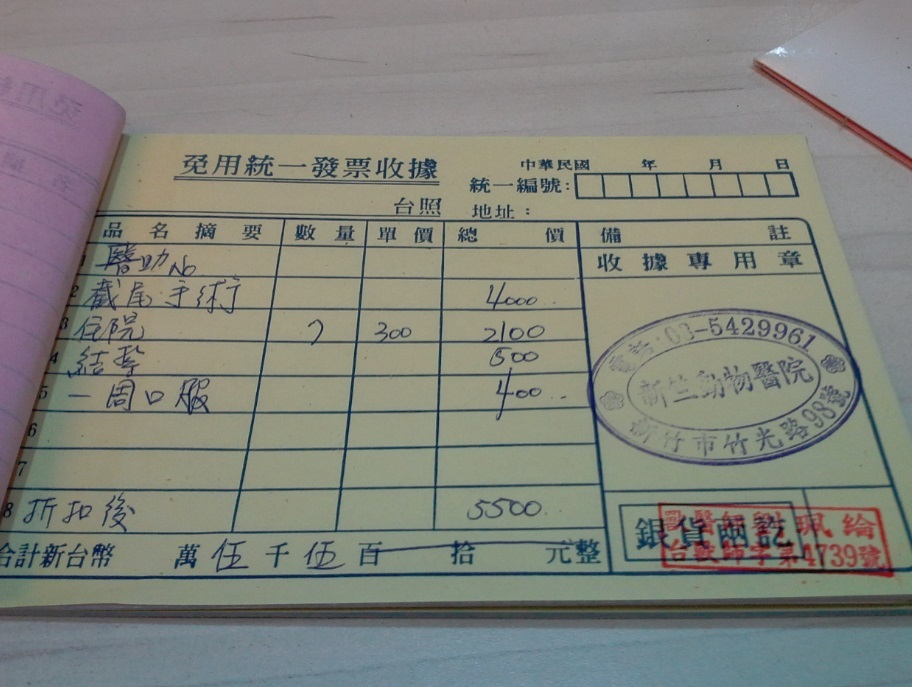 免用統一發票收據
中華民國 年 月 日
統一編號:
台照 地址:
品名摘要 數量 單價 總價 備註
收據專用章
醫助 No
2 截尾手術 4000
3 住院 7 300 2100
4 結紮 500
5 一周口服 400
6
7
8 折扣後 5500
合計新台幣 萬 伍 千 伍 百 拾 元整
電話:03-5429961
新竺動物醫院
新竹市竹光路98號
銀貨兩訖
珮綸
台獸師字第4739號